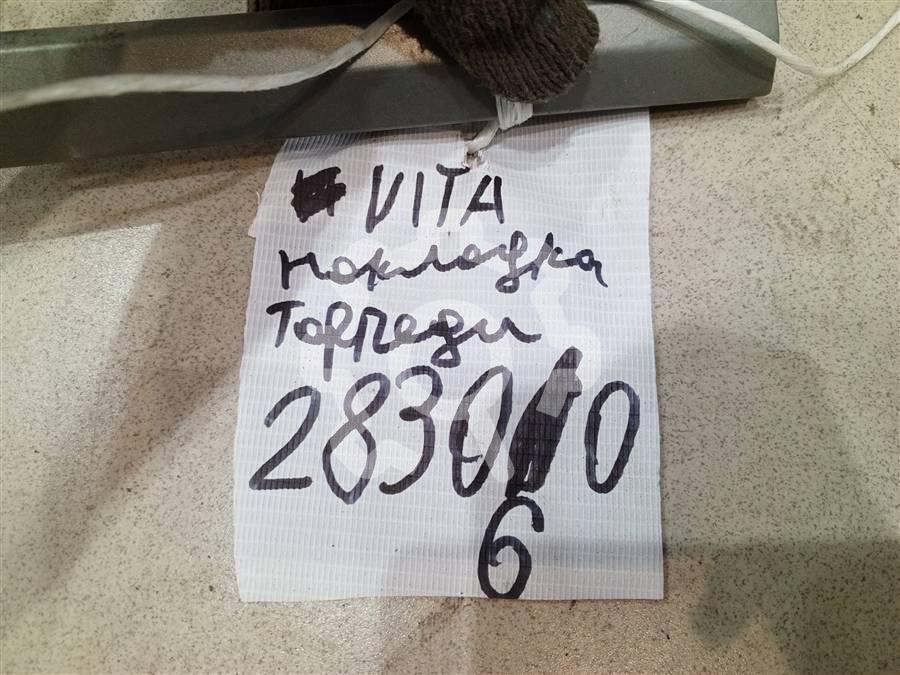 VITA
накладка
Торпеди
2830 0
6